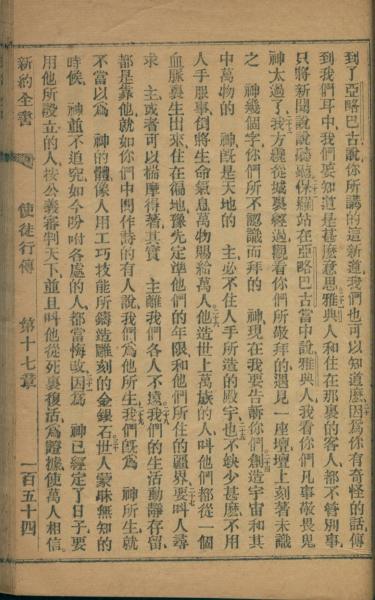 到了亞略巴古說、你所講的這新道、我們也可以知道麼、因為你有奇怪的話、傳
到我們耳中、我們要知道是甚麼意思、雅典人和住在那裏的客人、都不管別事、
只將新聞說說聽聽、保羅站在亞略巴古當中說、雅典人、我看你們凡事敬畏鬼
神太過了、我方纔從城裏經過、觀看你們所敬拜的、遇見一座壇、壇上刻著未識
之 神幾個字、你們所不認識而拜的 神、現在我要告訴你們、創造宇宙和其
中萬物的 神、既是天地的 主、必不住人手所造的殿宇、也不缺少甚麼、不用
人手服事、倒將生命氣息萬物賜給萬人、他造世上萬族的人、叫他們都從一個
血脈裏生出來、住在徧地、豫先定準他們的年限、和他們所住的疆界、要叫人尋
求 主、或者可以揣摩得著、其實 主離我們各人不遠、我們的生活動靜存留、
都是靠他、就如你們中間作詩的有人說、我們為他所生、我們既為 神所生、就
不當以為 神的體像人用工巧技能所鑄造雕刻的金銀石、世人蒙昧無知的
時候、 神並不追究、如今吩咐各處的人、都當悔改、因為 神已經定了日子、要
用他所設立的人、按公義審判天下、並且叫他從死裏復活、為證據、使萬人相信、
新約全書 使徒行傳 第十七章 一百五十四